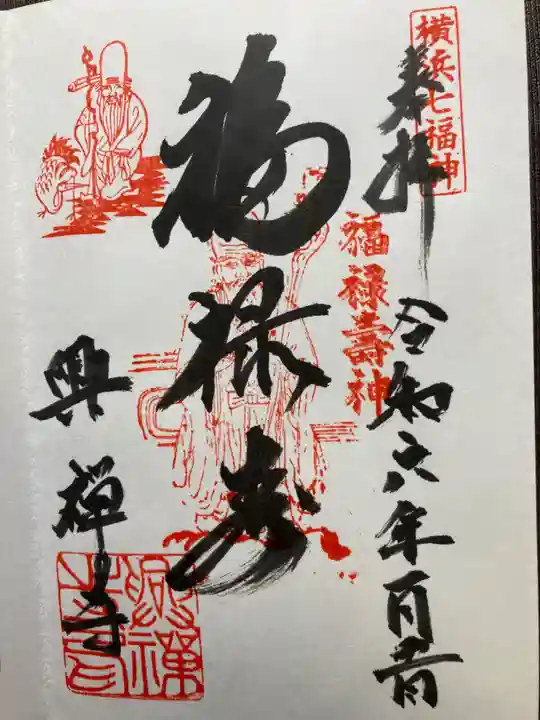 横浜七福神
奉拝
福禄壽神
令和六年一月一日
福禄寿
興禅寺